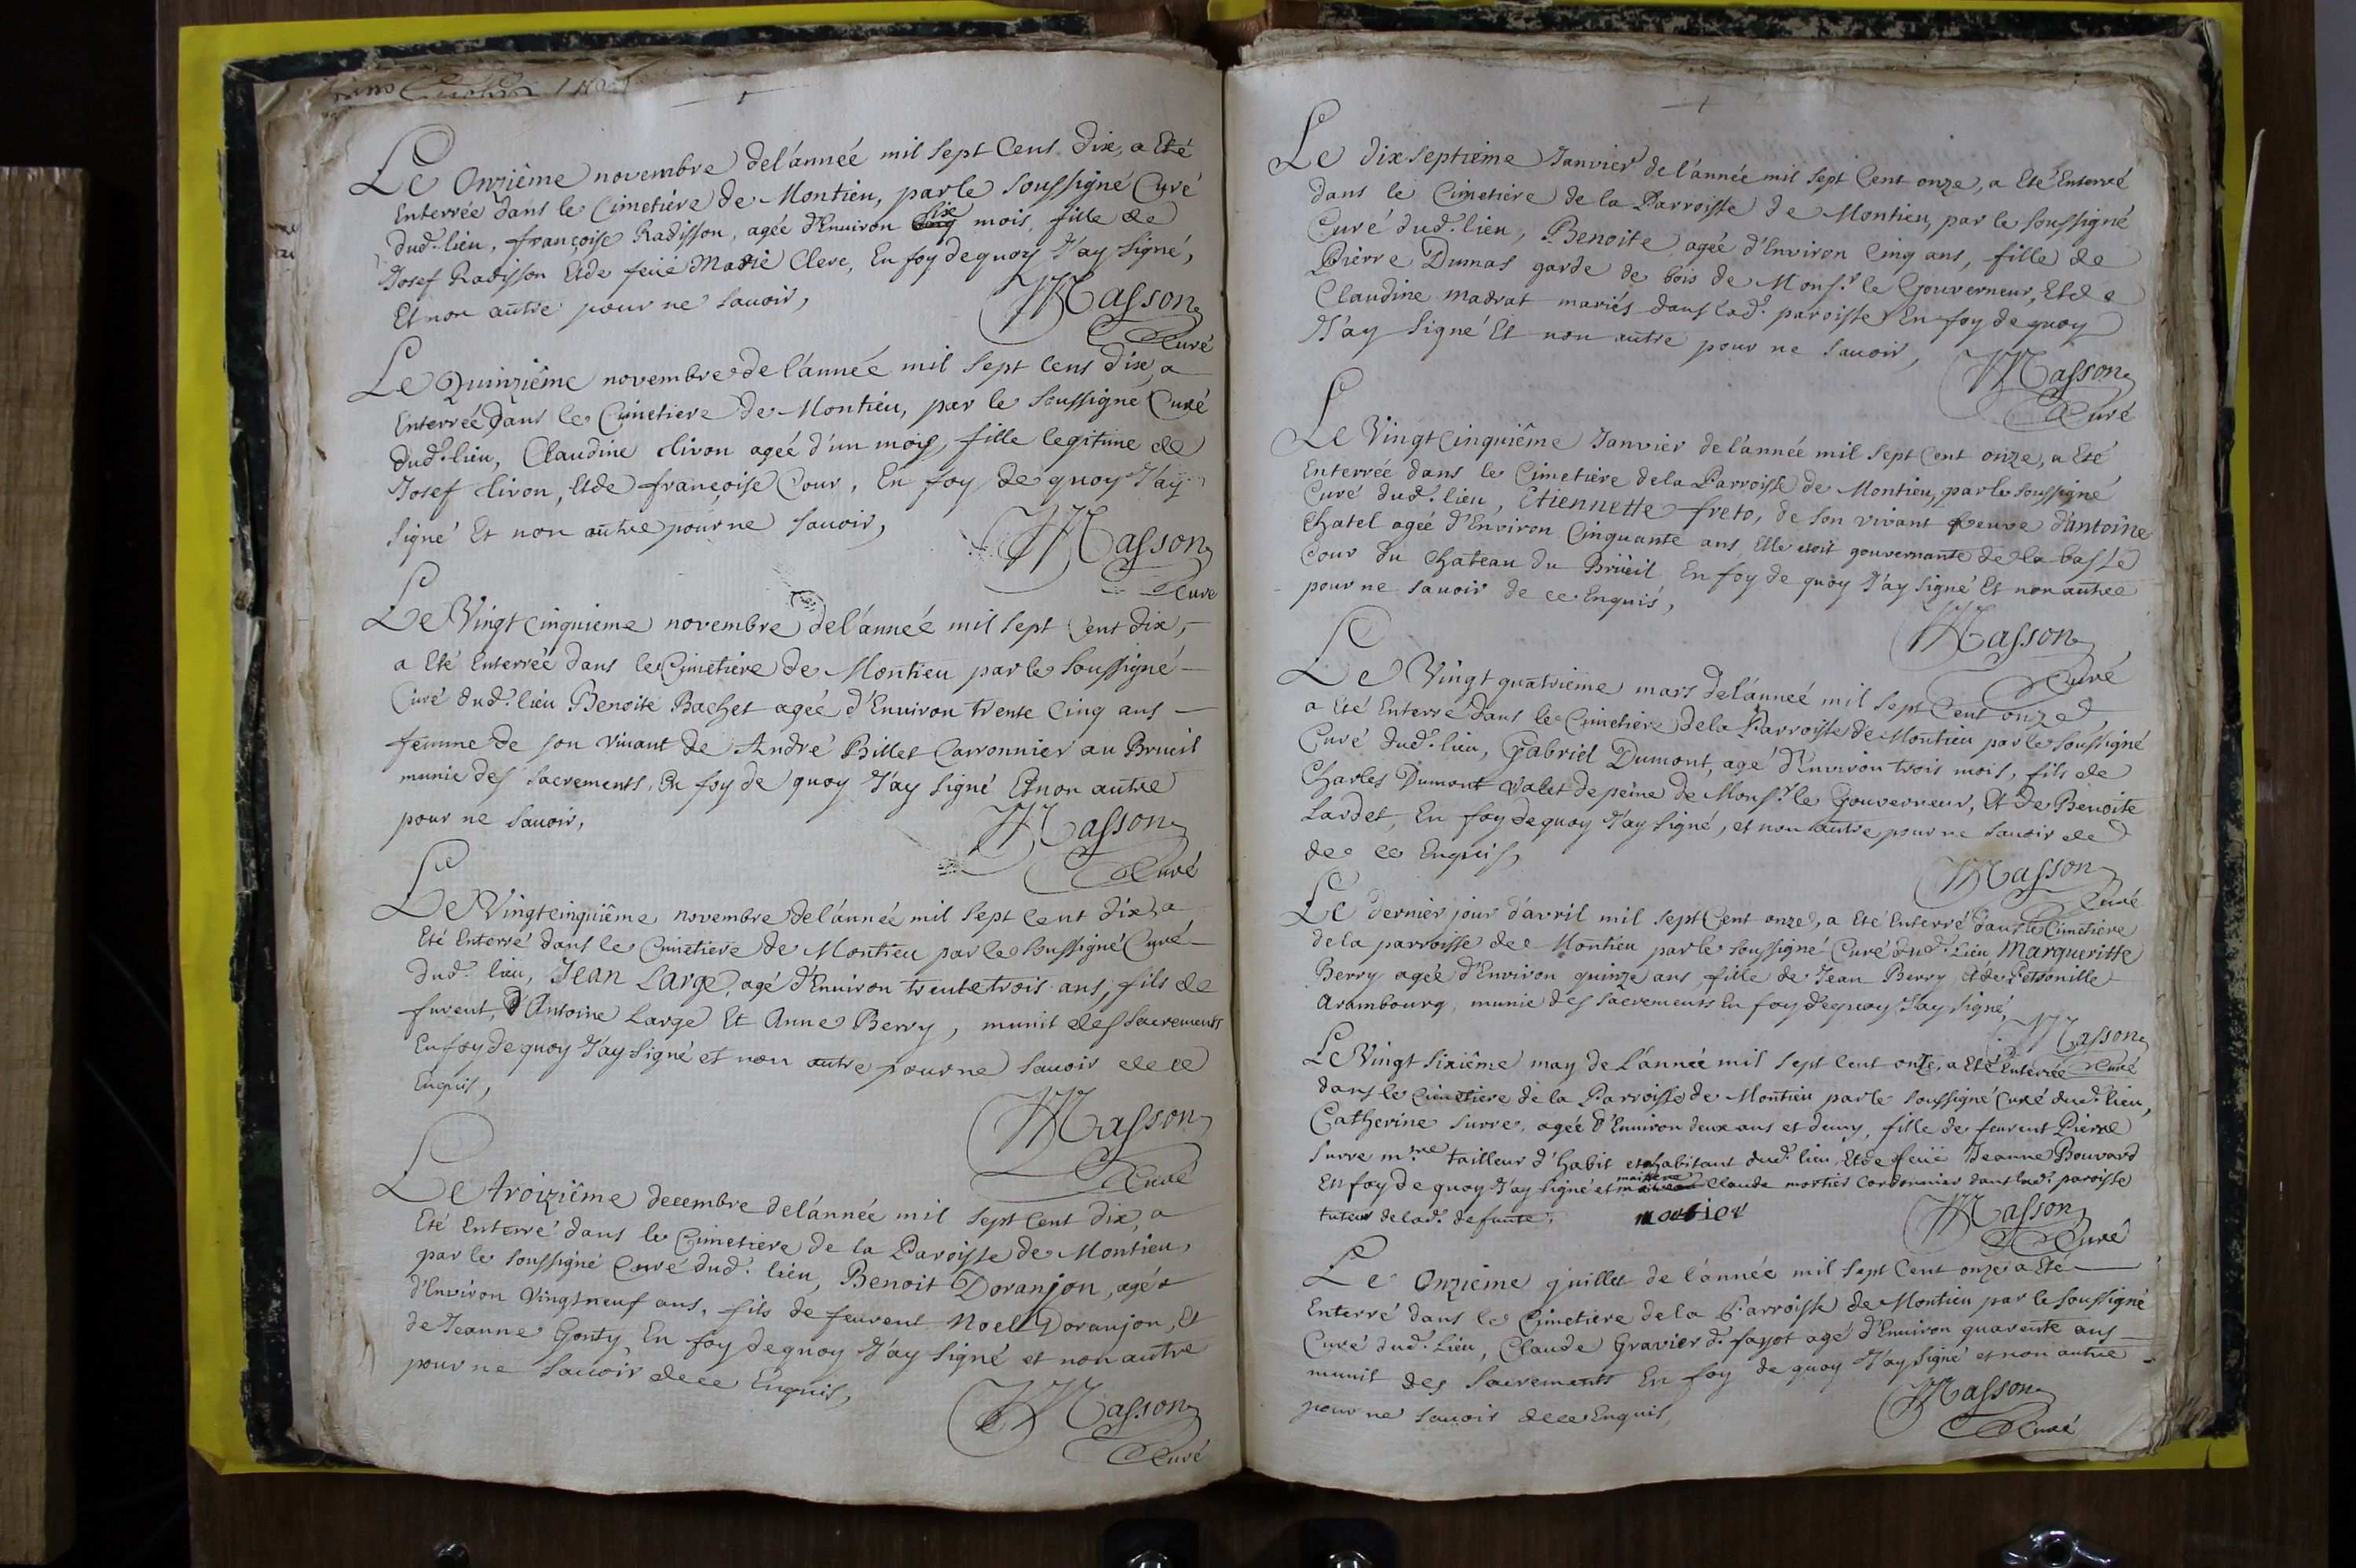 Le Onzième novembre de l'année mil sept Cens Dix, a Eté
Enterrée dans le Cimetière de Montieu, par le soussigné Curé
dud.t lieu, françoise Radisson, agée d'Enuiron six mois, fille de
Josef Radisson Et de feüe Marie Clerc, En foy de quoy J'ay signé,
Et non autre pour ne sauoir,
Masson
Curé
Le Quinzième novembre de l'année mil sept Cens dix, a
Enterrée dans le Cimetiere de Montieu, par le soussigné Curé
dud.t lieu, Claudine Liron agée d'un mois, fille legitime de
Josef Liron, Et de françoise Cour, En foy de quoy J'ay
signé Et non autre pour ne sauoir,
Masson
Curé
Le Vingt Cinquieme novembre de l'année mil sept Cent dix,
a Eté Enterrée dans le Cimetière de Montieu par le soussigné
Curé dud.t lieu Benoite Bachet agée d'Enuiron trente Cinq ans
femme de son viuant de André Billet Carronnier au Brueil
munie des sacrements, En foy de quoy J'ay signé Et non autre
pour ne sauoir,
Masson
Curé
Le Vingtcinquième novembre de l'année mil sept Cent dix, a
Eté Enterré dans le Cimetiere de Montieu par le soussigné Curé
dud.t lieu, Jean Large, agé d'Enuiron trente trois ans, fils de
furent, d'Antoine Large Et Anne Berry, munit des sacrements
En foy de quoy J'ay signé et non autre pour ne sauoir de ce
Enquis,
Masson
Curé
Le troizième decembre de l'année mil sept Cent dix, a
Eté Enterré dans le Cimetiere de la Paroisse de Montieu,
par le soussigné Curé dud.t lieu, Benoit Doranjon, agé
d'Enuiron Vingtneuf ans, fils de feurent Noel Doranjon, Et
de Jeanne Gonty, En foy de quoy J'ay signé et non autre
pour ne sauoir de ce Enquis,
Masson
Curé
Le dixseptieme Janvier de l'année mil sept Cent onze, a Eté Enterré
dans le Cimetiere de la Parroisse de Montieu, par le soussigné
Curé dud.t lieu, Benoite agée d'Environ Cinq ans, fille de
Pierre Dumas garde de bois de Mons.r le Gouverneur, Et de
Claudine madrat mariés dans lad.t paroisse En foy de quoy
J'ay signé Et non autre pour ne sauoir,
Masson
Curé
Le Vingt Cinquième Janvier de l'année mil sept Cent onze, a Eté
Enterrée dans le Cimetiere de la Parroisse de Montieu, par le soussigné
Curé dud.t lieu, Etiennette freto, de son vivant veuve d'antoine
Chatel agée d'Environ Cinquante ans, Elle etoit gouvernante de la basse
Cour du Chateau du Brüeil En foy de quoy J'ay signé Et non autre
pour ne sauoir de ce Enquis,
Masson
Curé
Le Vingt quatrieme mars de l'année mil sept Cent onze
a Eté Enterré dans le Cimetiere de la Parroisse de Montieu par le soussigné
Curé dud.t lieu, Gabriel Dumont, agé d'Environ trois mois, fils de
Charles Dumont valet de peine de Mons.r le Gouverneur, Et de Benoite
Lardet, En foy de quoy J'ay signé, et non autre pour ne sauoir de
de ce Enquis,
Masson
Curé
Le dernier jour d'avril mil sept Cent onze, a Eté Enterré dans le Cimetière
de la parroisse de Montieu par le soussigné Curé dud.t Lieu Margueritte
Berry agée d'Environ quinze ans, fille de Jean Berry, et de Petronille
Arambourg, munie des sacrements En foy de quoy J'ay signé,
Masson
Curé
Le Vingt sixième may de L'année mil sept Cent onze, a Eté Enterrée
dans le Cimetiere de la Parroisse de Montieu par le soussigné Curé dud.t lieu,
Catherine Surre, agée d'Enuiron deux ans et demy, fille de feurent Pierre
Surre m.tre tailleur d'habit et habitant dud.t lieu, Et de feüe Jeanne Bouvard
En foy de quoy J'ay signé et maitre Claude mortier Cordonnier dans lad.t paroisse
tuteur de lad.t defunte,
mortier
Masson
Curé
Le Onzieme juillet de l'année mil sept Cent onze a Eté
Enterré dans le Cimetiere de la Parroisse de Montieu par le soussigné
Curé dud.t Lieu, Claude Gravier d.t fayot agé d'Enuiron quarente ans
munit des Sacrements En foy de quoy J'ay signé et non autre
pour ne sauoir de ce Enquis,
Masson
Curé